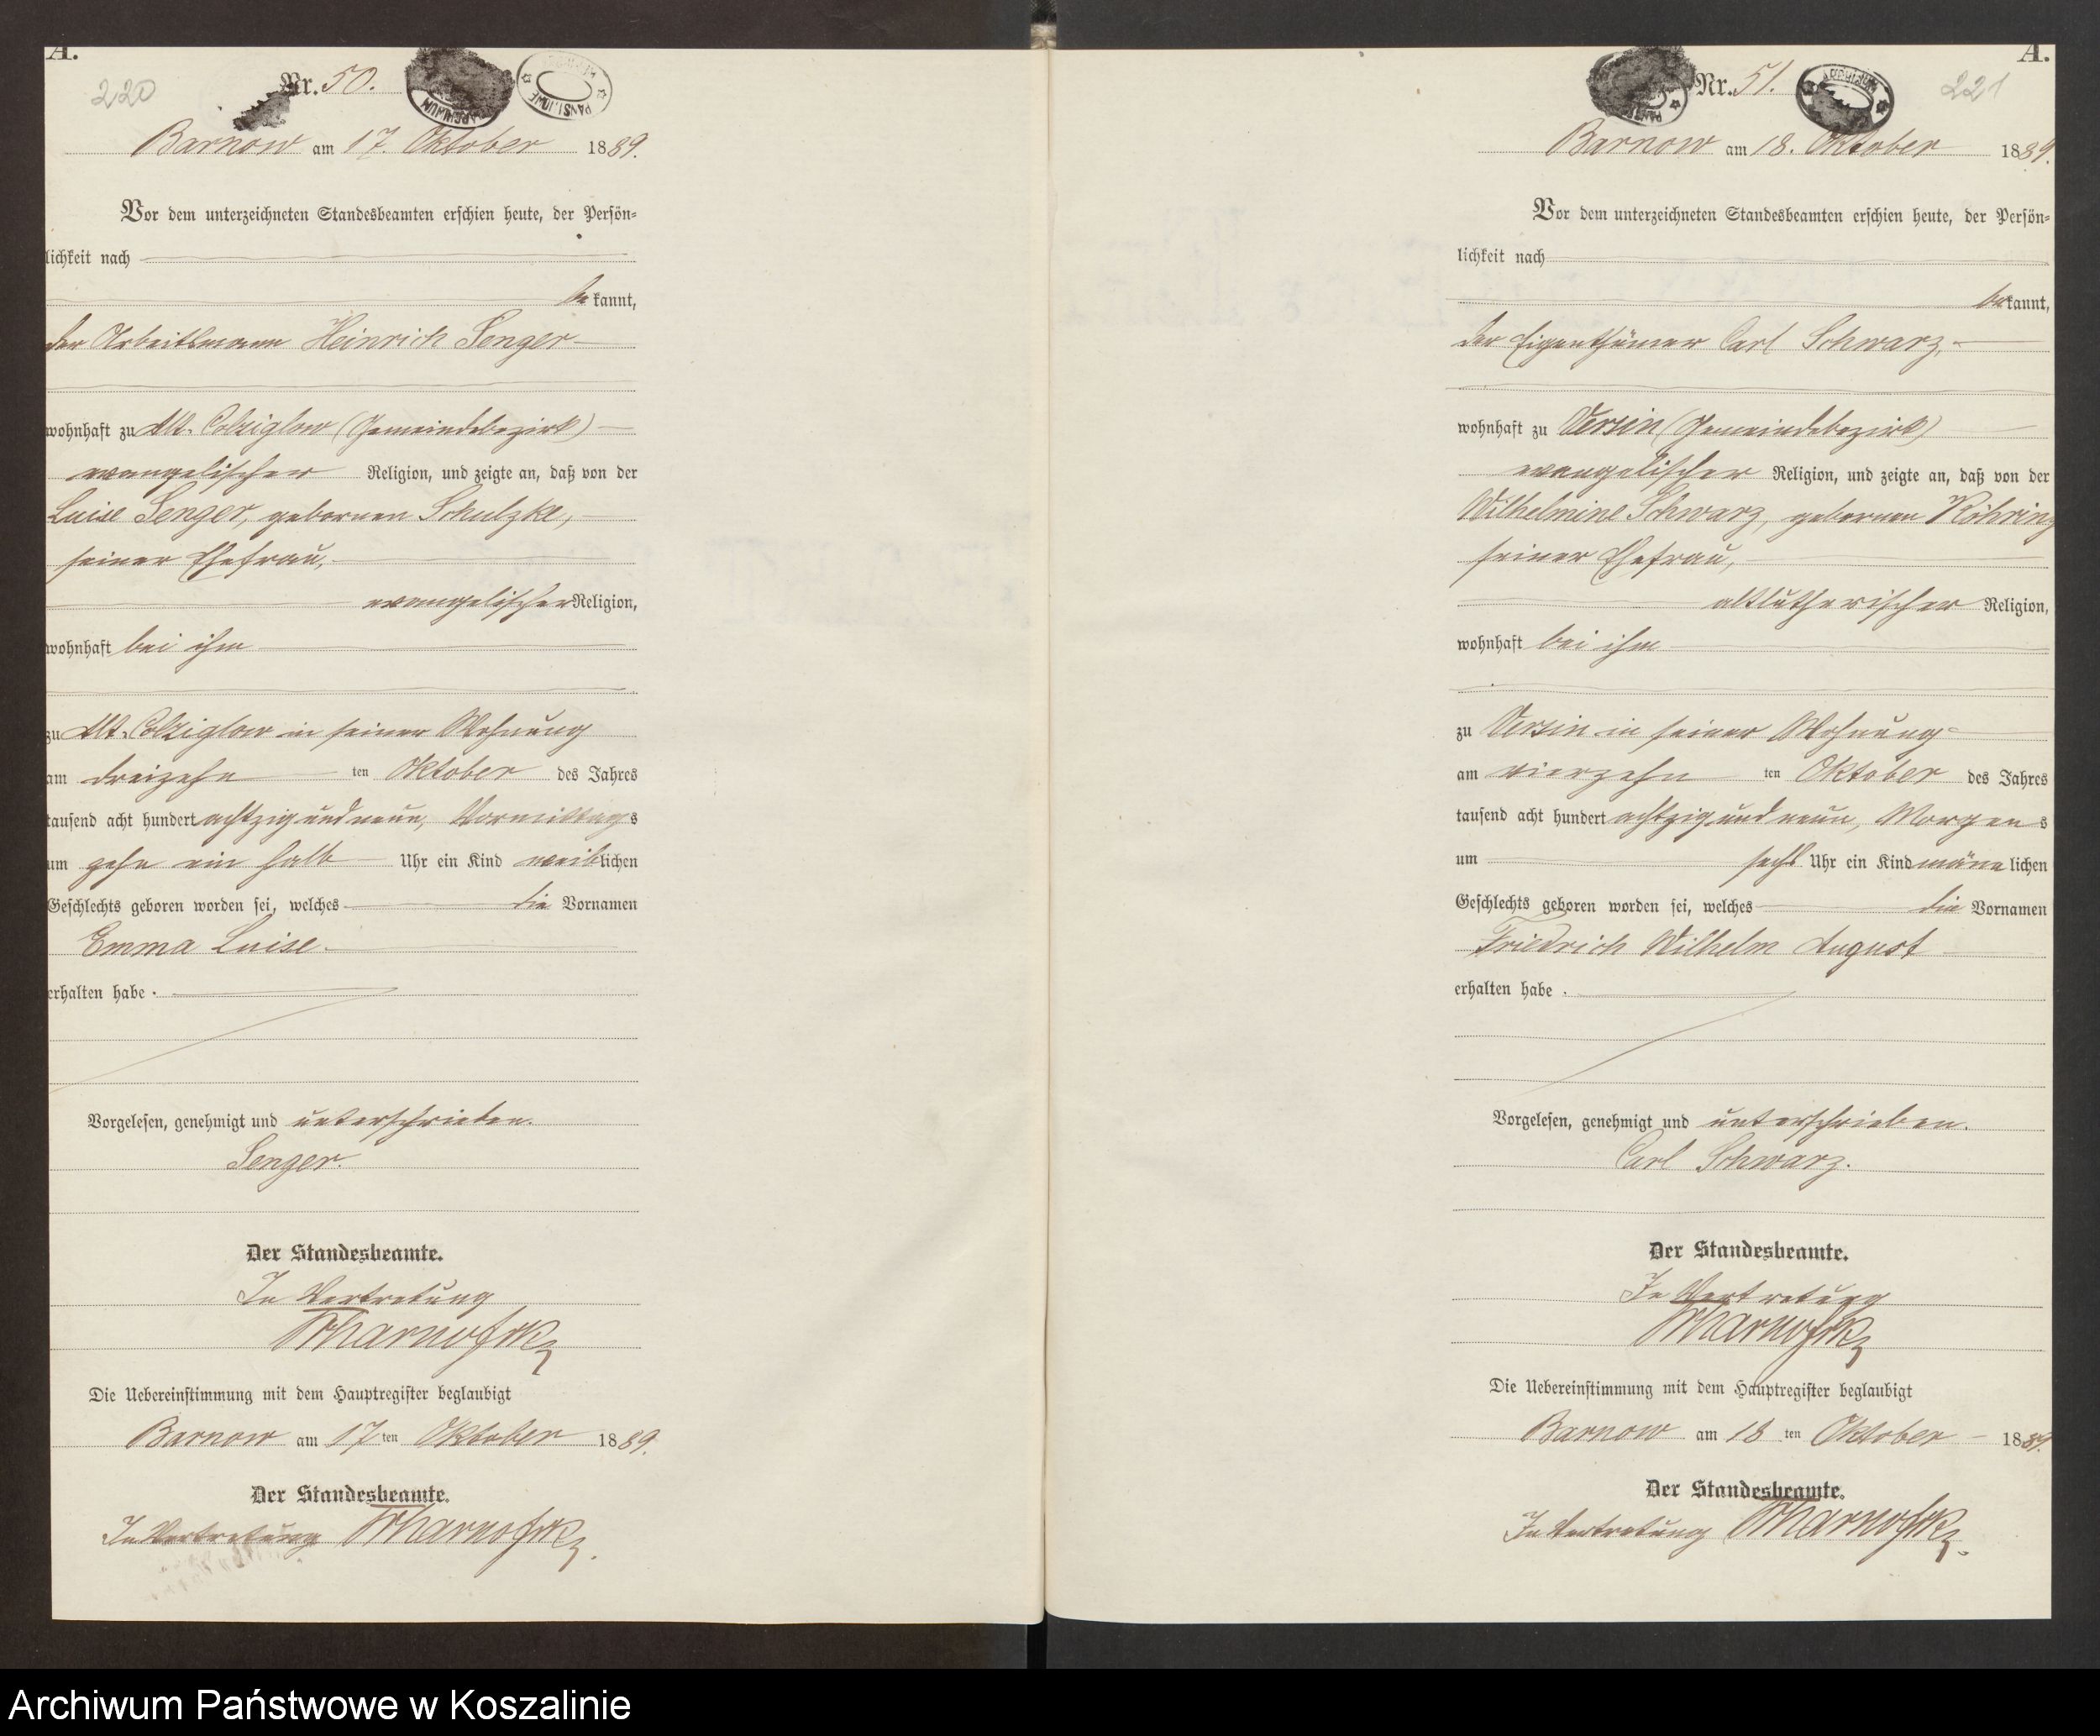 A.
220
Nr. 50.
Barnow am 17. Oktober 1889.
Vor dem unterzeichneten Standesbeamten erschien heute, der Persön-
lichkeit nach
bekannt,
der Arbeitsmann Heinrich Senger
wohnhaft zu Alt-Colziglow (Gemeindebezirk)
evangelischer Religion, und zeigte an, daß von der
Luise Senger, gebornen Schulzke,
seiner Ehefrau,
evangelischer Religion,
wohnhaft bei ihm
zu Alt-Colziglow in seiner Wohnung
am dreizehn ten Oktober des Jahres
tausend acht hundert achtzig und neun, Vormittags
um zehn ein halb Uhr ein Kind weiblichen
Geschlechts geboren worden sei, welches die Vornamen
Emma Luise
erhalten habe.
Vorgelesen, genehmigt und unterschrieben.
Senger.
Der Standesbeamte.
In Vertretung
Die Uebereinstimmung mit dem Hauptregister beglaubigt
Barnow am 17 ten Oktober 1889.
Der Standesbeamte.
In Vertretung
A.
221
Nr. 51.
Barnow am 18. Oktober 1889.
Vor dem unterzeichneten Standesbeamten erschien heute, der Persön-
lichkeit nach
bekannt,
der Eigenthümer Carl Schwarz,
wohnhaft zu Versin (Gemeindebezirk)
evangelischer Religion, und zeigte an, daß von der
Wilhelmine Schwarz, gebornen Röhring
seiner Ehefrau,
altlutherischer Religion,
wohnhaft bei ihm
zu Versin in seiner Wohnung
am vierzehn ten Oktober des Jahres
tausend acht hundert achtzig und neun, Morgens
um sechs Uhr ein Kind männlichen
Geschlechts geboren worden sei, welches die Vornamen
Friedrich Wilhelm August
erhalten habe.
Vorgelesen, genehmigt und unterschrieben.
Carl Schwarz.
Der Standesbeamte.
In Vertretung
Die Uebereinstimmung mit dem Hauptregister beglaubigt
Barnow am 18 ten Oktober 1889.
Der Standesbeamte.
In Vertretung
Archiwum Państwowe w Koszalinie